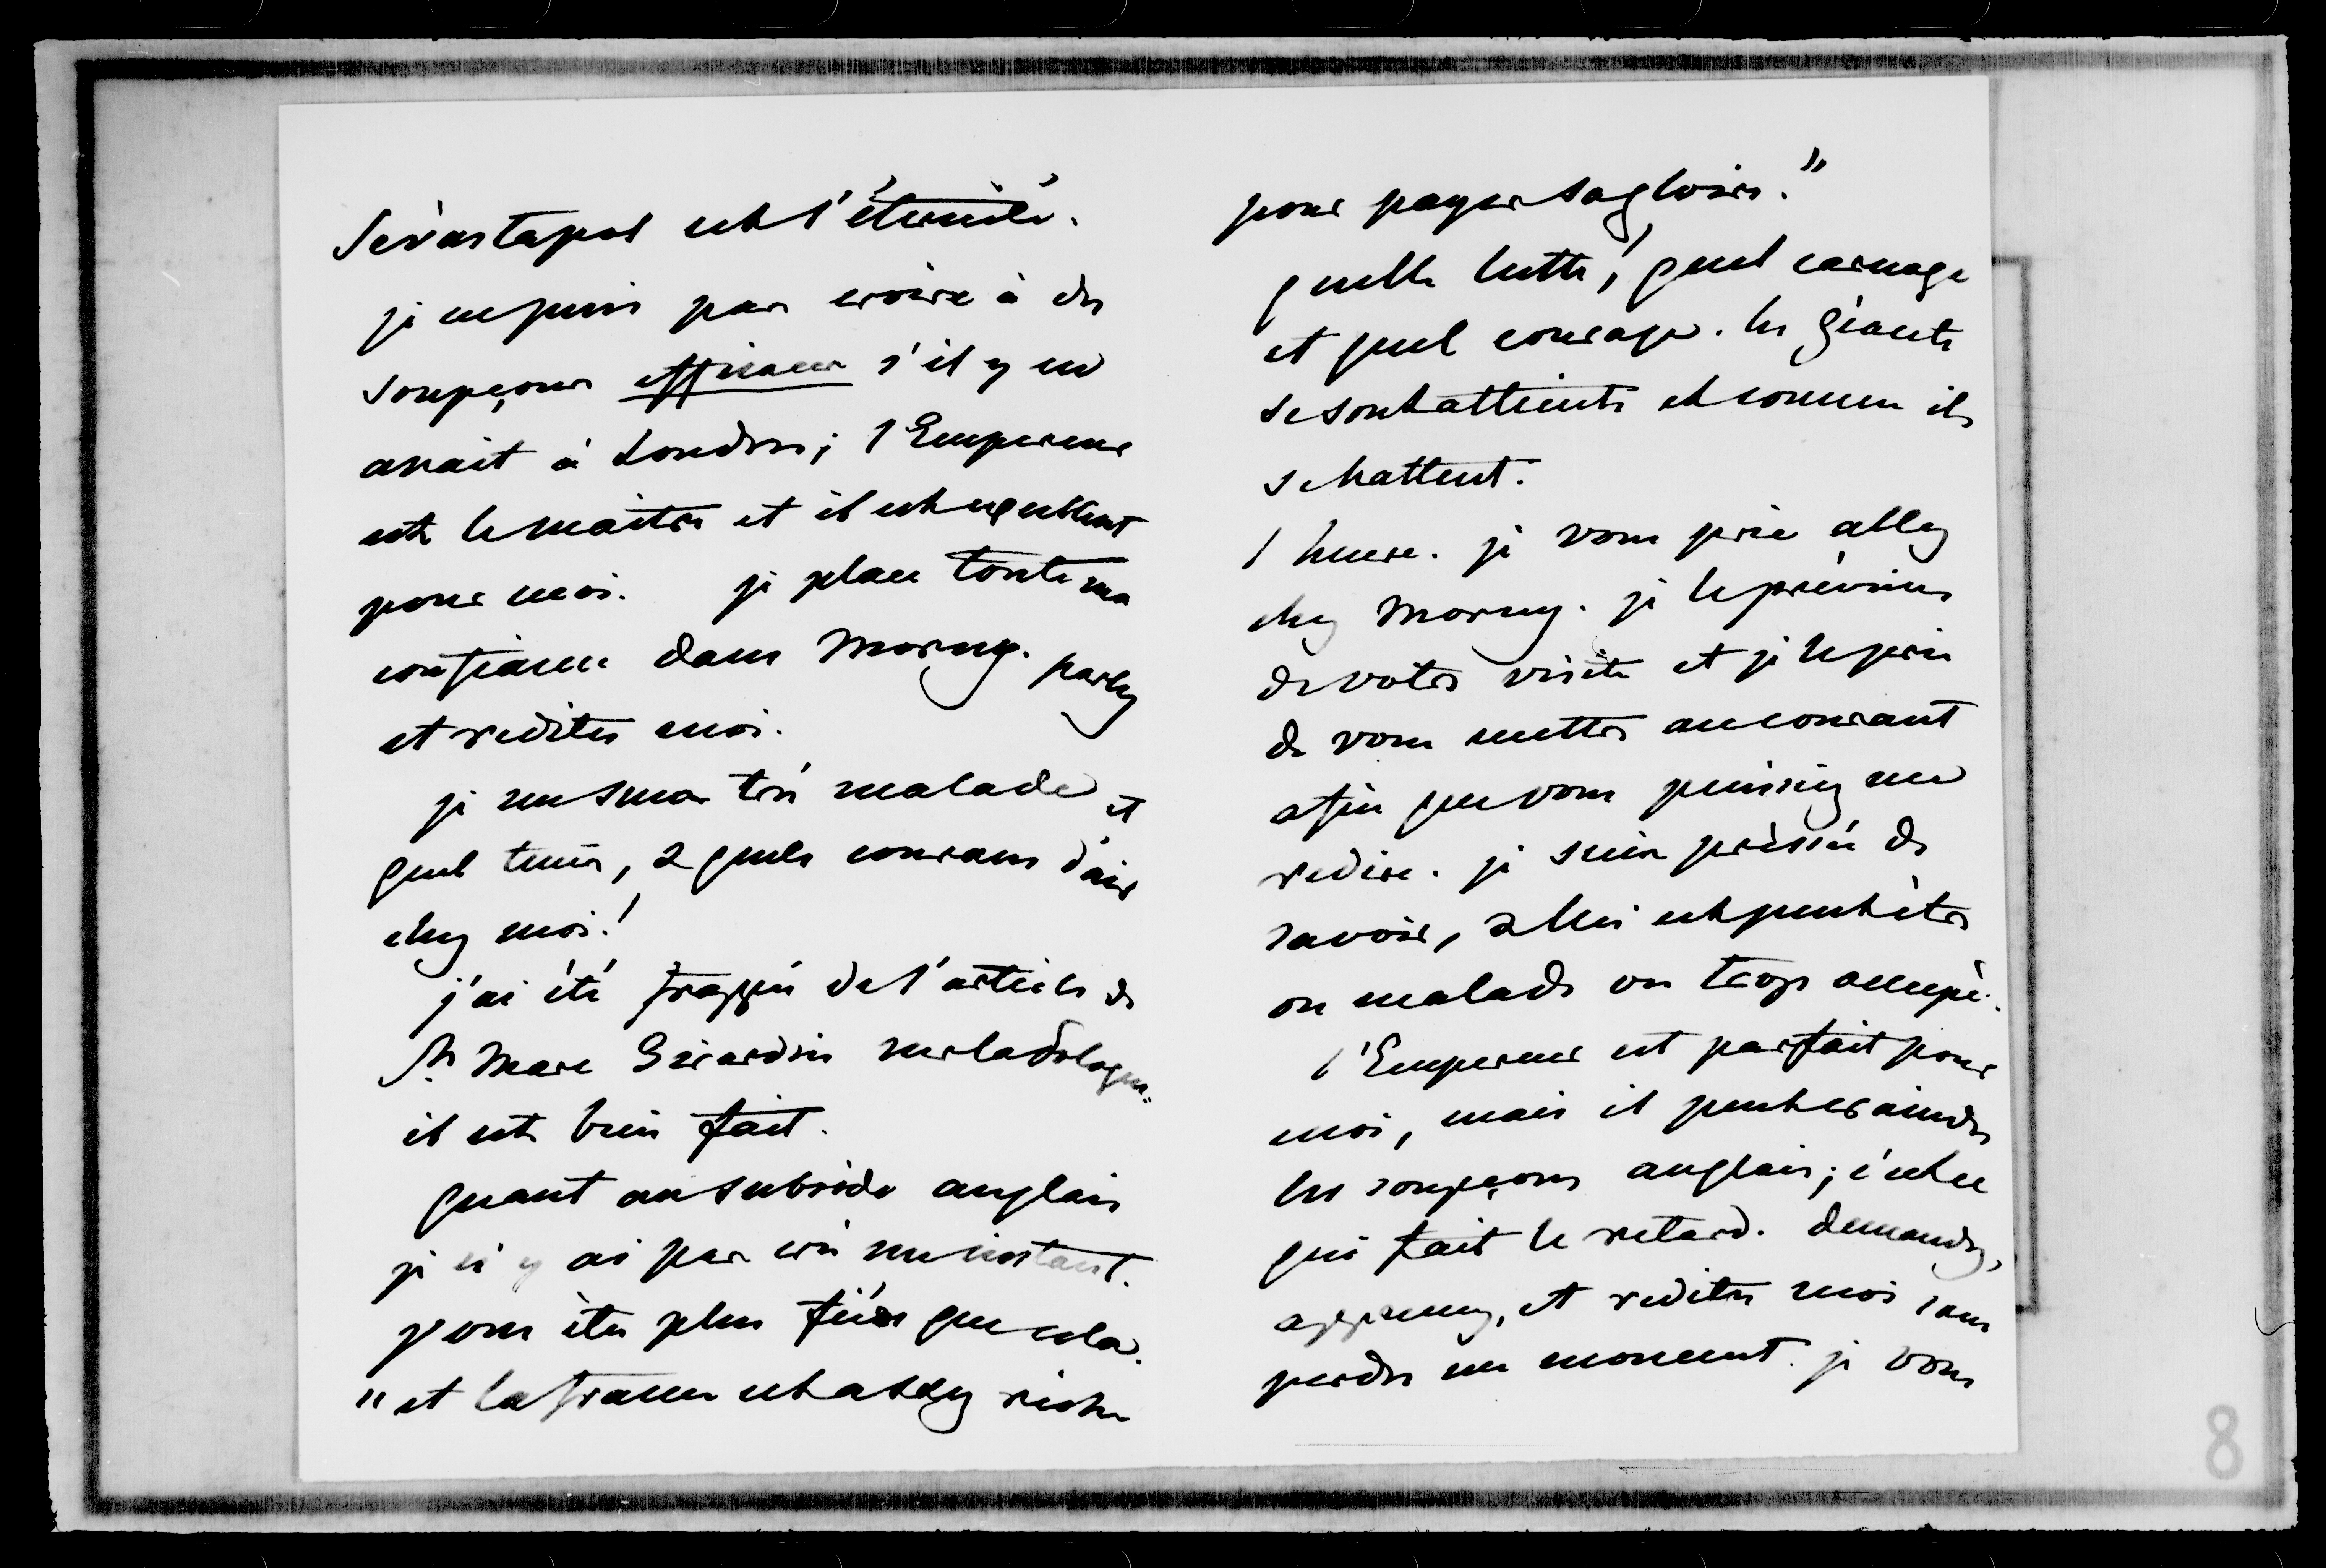 Sévastopol est l'éternité.
je ne puis pas croire à des
soupçons efficaces s'il y en
avait à Londres; l'Empereur
est le maître et il est excellent
pour moi. je place toute ma
confiance dans Morny. parlez
et redites moi.
je me sens très malade et
quel tems, & quels courans d'air
chez moi!
j'ai été frappée de l'article de
St Marc Girardin sur la
il est bien fait.
quant au subside anglais
je n'y ai pas cru un instant.
vous êtes plus fiers que cela.
"et la france est assez riche
pour payer sa gloire."
quelle lutte! quel carnage
et quel courage. les géants
se sont atteints et comme ils
se battent.
1 heure. je vous prie allez
chez Morny. je le préviens
de votre visite et je le prie
de vous mettre au courant
afin que vous puissiez me
redire. je suis pressée de
savoir, & lui est peut être
ou malade ou trop occupé.
l'Empereur est parfait pour
moi, mais il peut craindre
les soupçons anglais; c'est ce
qui fait le retard. demandez,
apprenez, et redites moi sans
perdre un moment. je vous
8